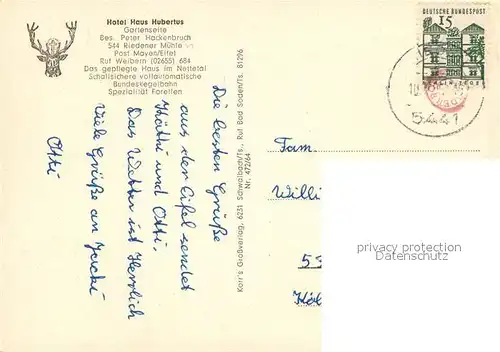 Hotel Haus Hubertus
Gartenseite
Bes. Peter Hackenbruch
544 Riedener Mühle
Post Mayen/Eifel
Ruf Weibern (02655) 684
Das gepflegte Haus im Nettetal
Schallsichere vollautomatische
Bundeskegelbahn
Spezialität Forellen
Die besten Grüße
aus der Eifel sendet
Käthi und Otti.
Das Wetter ist Herrlich
Viele Grüße an Jacki
Otti
Karr's Großverlag, 6231 Schwalbach/Ts., Ruf Bad Soden/Ts. 81296
Nr. 472/64
DEUTSCHE BUNDESPOST
15
5441
Fam.
Willi
53
Köl
privacy protection
www.oldthing.de